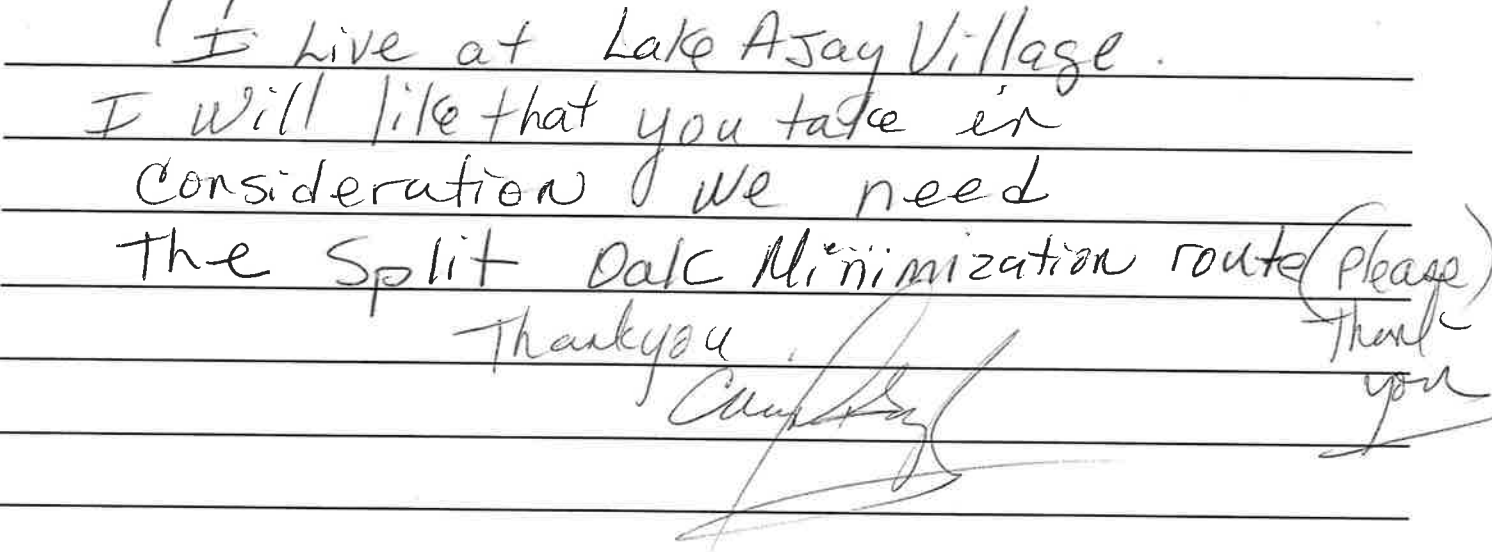 I Live at Lake AJay Village.
I will like that you take in
consideration we need
The Split Oak Minimization route (please)
Thankyou. Thank
you